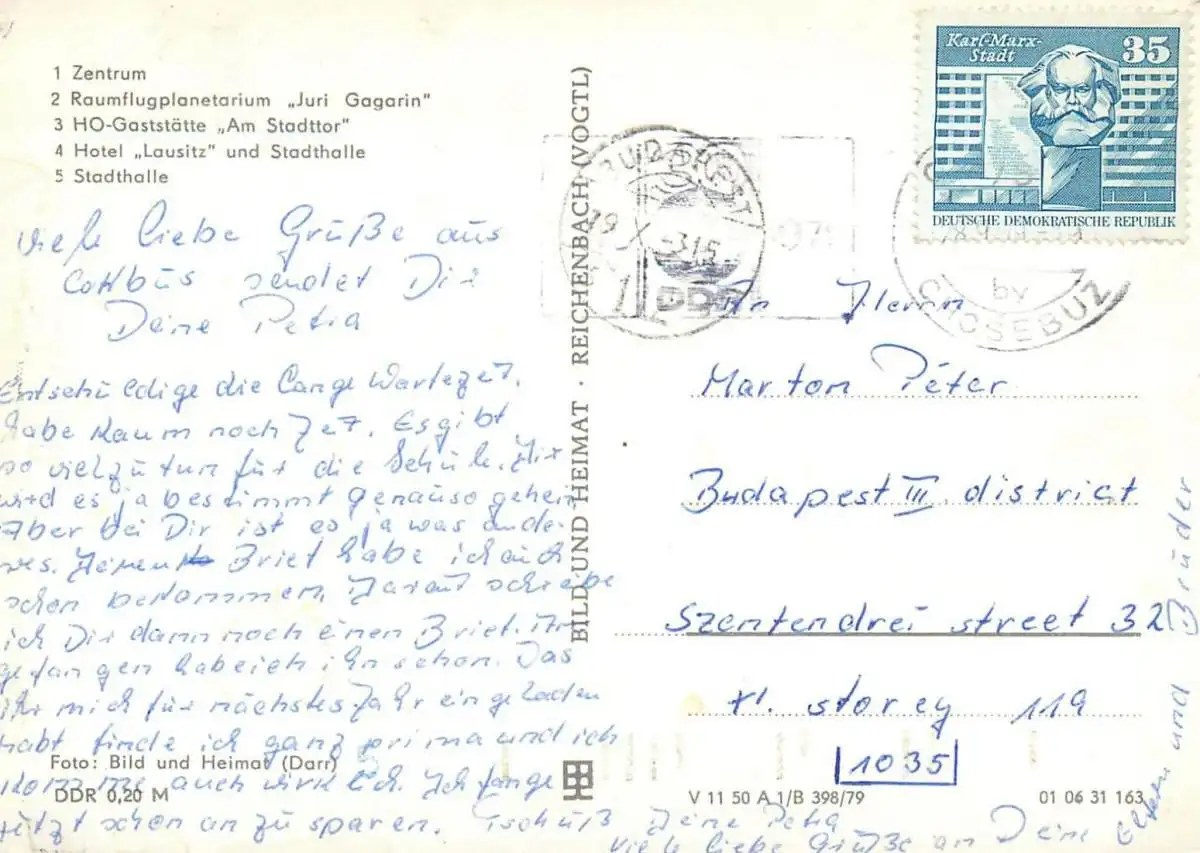 1 Zentrum
2 Raumflugplanetarium „Juri Gagarin"
3 HO-Gaststätte „Am Stadttor"
4 Hotel „Lausitz" und Stadthalle
5 Stadthalle
Viele liebe Grüße aus
Cottbus sendet Dir
Deine Petra
Entschuldige die lange Wartezeit.
habe kaum noch Zeit. Es gibt
so viel zu tun für die Schule. Dir
wird es ja bestimmt genauso gehen
Aber bei Dir ist es ja was ande-
res. Deinen Brief habe ich auch
schon bekommen. Darauf schreibe
ich Dir dann noch einen Brief.
gefangen habe ich ihn schon. Das
ihr mich für nächstes Jahr eingeladen
habt finde ich ganz prima und ich
komme auch wirklich. Ich fange
jetzt schon an zu sparen. Tschüß Deine Petra
Viele liebe Grüße an Deine Eltern und Bruder
Foto: Bild und Heimat (Darr)
DDR 0,20 M
BILD UND HEIMAT · REICHENBACH (VOGTL)
Karl-Marx-
Stadt
35
DEUTSCHE DEMOKRATISCHE REPUBLIK
DDR
CHOSEBUZ
by
An Herrn
Marton Péter
Budapest III. district
Szentendrei street 32
XI. storey 119
1035
V 11 50 A 1/B 398/79
01 06 31 163